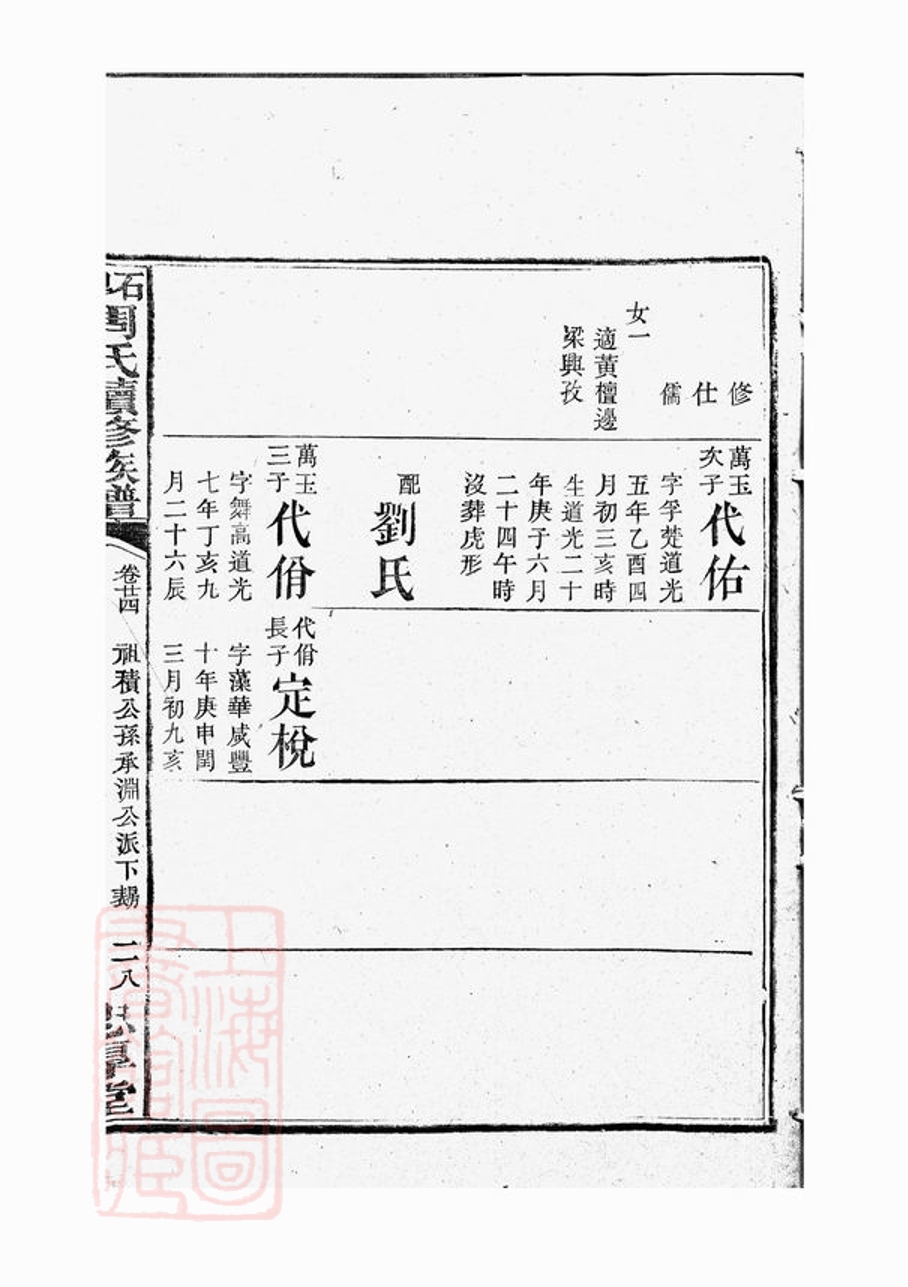 修
仕
儒
女一
適黃檀邊
梁興孜
萬玉
次子
代佑
字孚焚道光
五年乙酉四
月初三亥時
生道光二十
年庚子六月
二十四午時
沒葬虎形
配
劉氏
萬玉
三子
代佾
字舞高道光
七年丁亥九
月二十六辰
代佾
長子
定梲
字藻華咸豐
十年庚申閏
三月初九亥
石
周氏續修族譜
卷廿四
祖積公孫承淵公派下
二八
忠厚堂
上海圖
書館藏